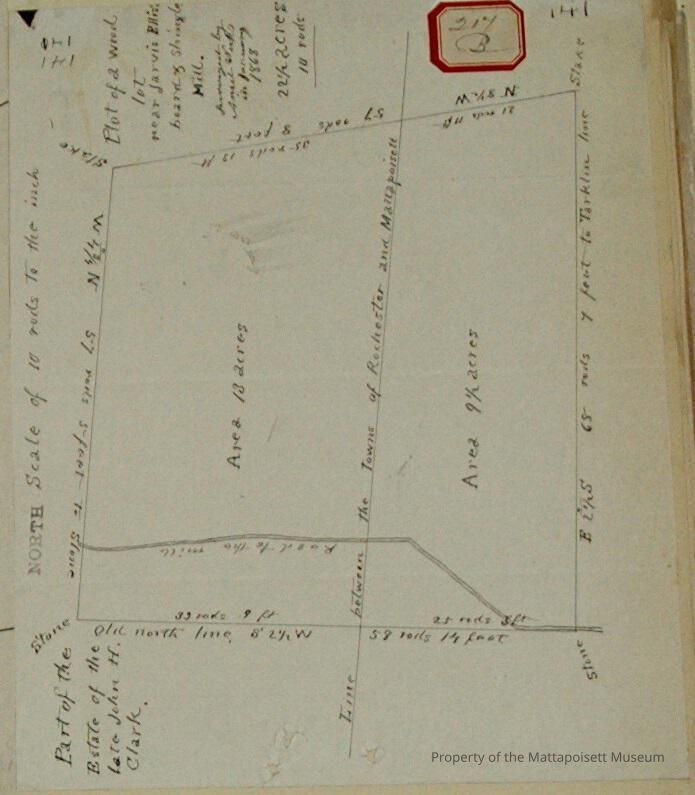 141
141
217
B
Plot of a Wood
lot
near Jarvis Ellis
board & Shingle
Mill.
Surveyed by
in January
1868
22½ acres
10 rods
NORTH Scale of 10 rods to the inch
Stake
35 rods 13 ft
57 rods 8 feet
21 rods 11 ft
N 8½ W
Stake
57 rods 5 feet to Stone
Area 13 acres
Line between the Towns of Rochester and Mattapoisett
Area 9½ acres
E 2½ S 65 rods 7 feet to Tarklin line
Road to the mill
Stone
Old north line
58 rods 14 feet
Stone
Part of the
Estate of the
late John H.
Clark.
Property of the Mattapoisett Museum